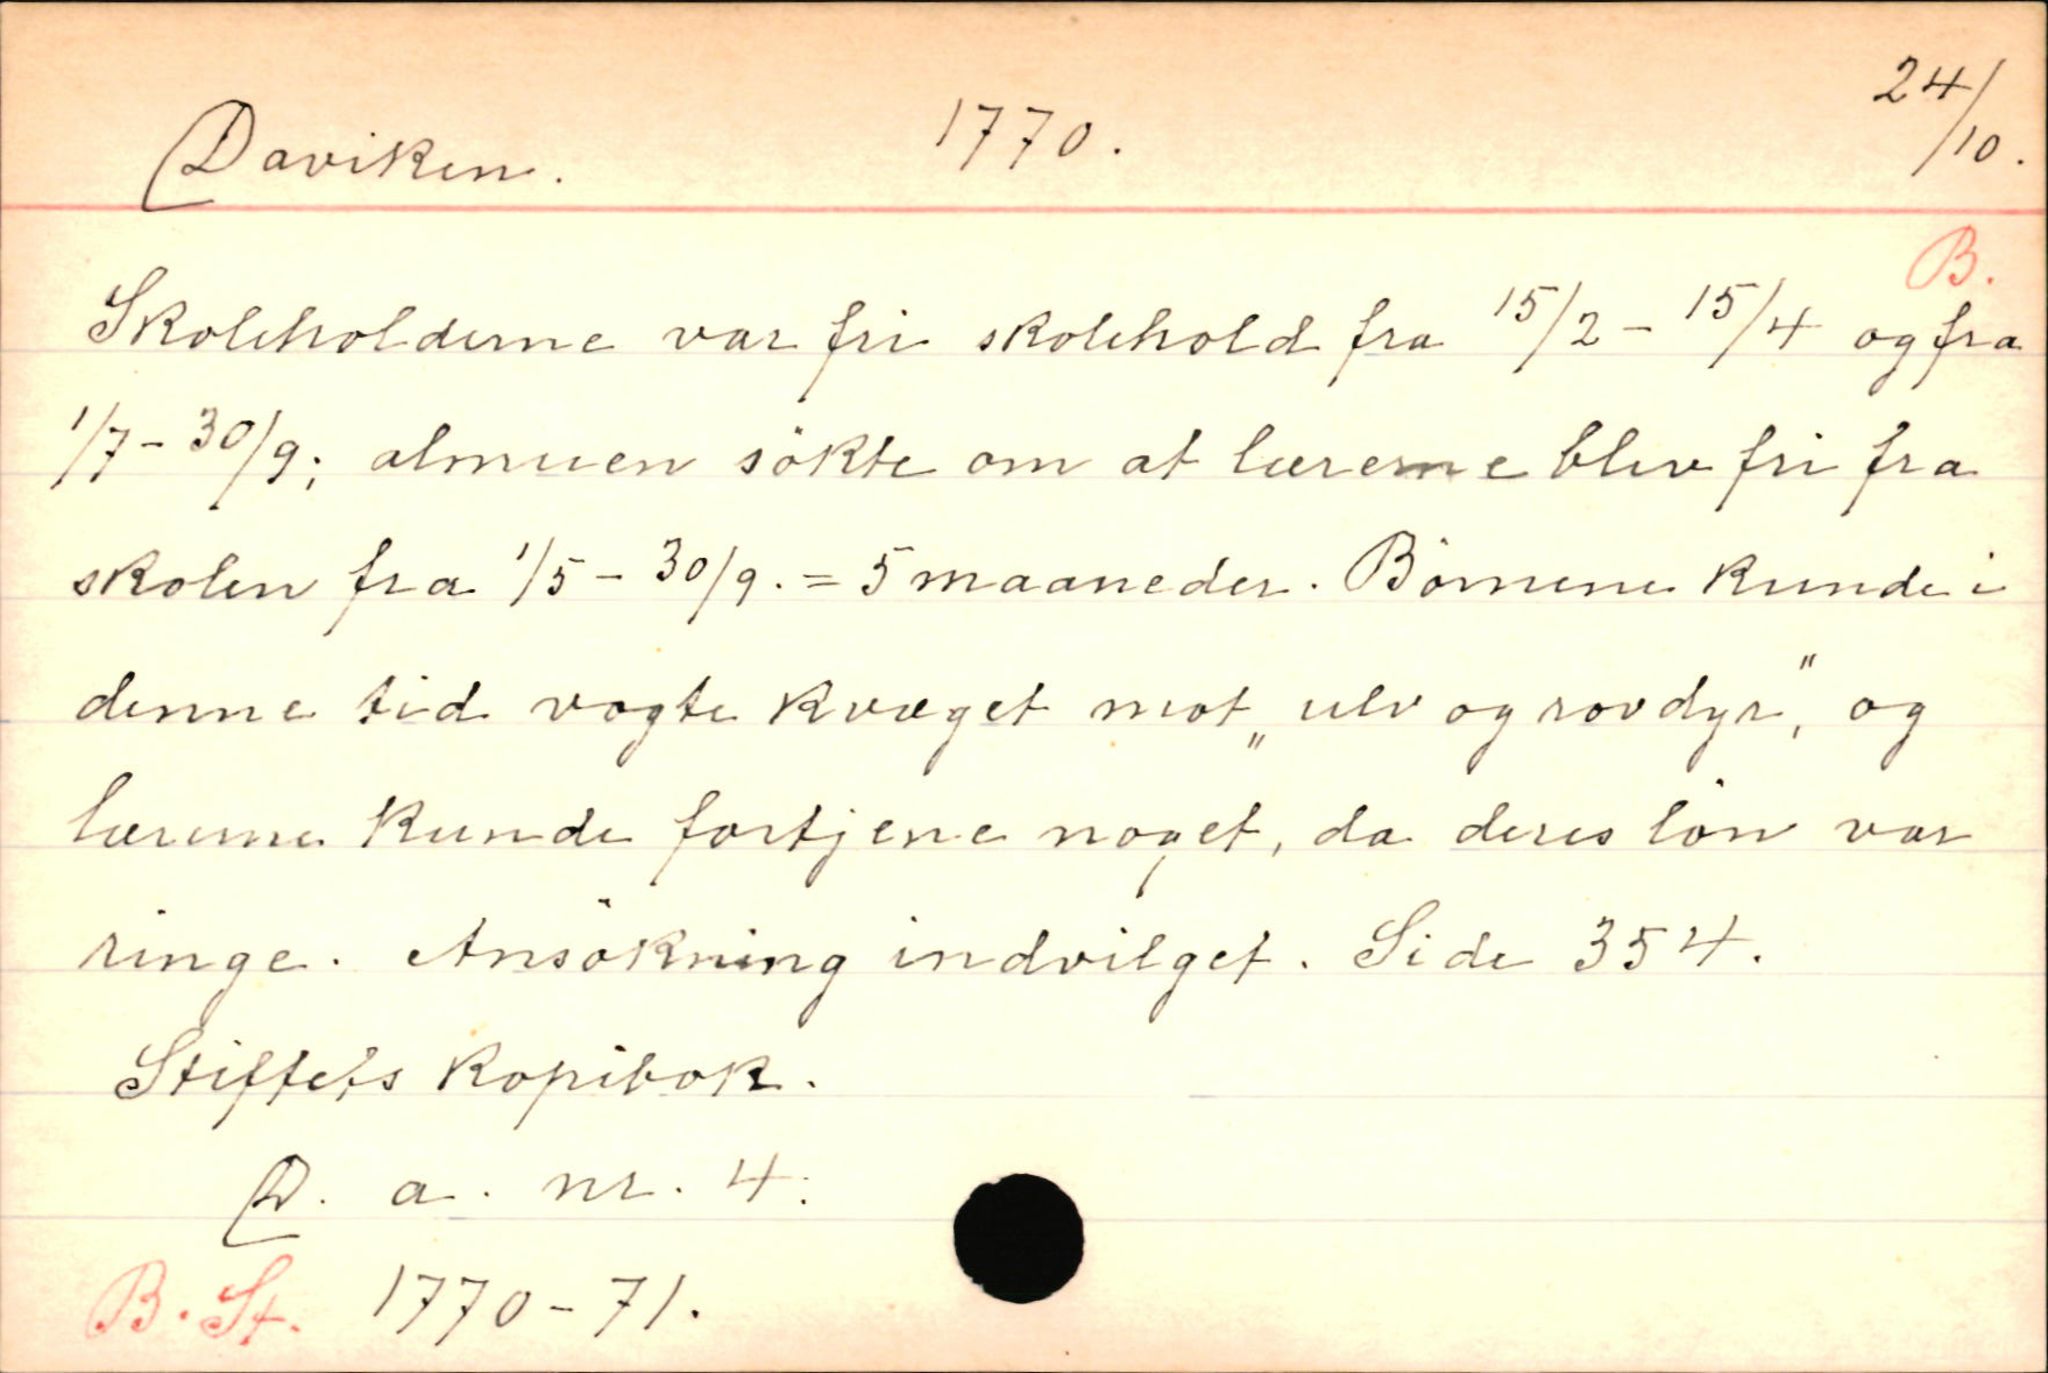 Daviken. 1770. 24/10.
B.
Skoleholderne var fri skolehold fra 15/2 - 15/4 og fra
1/7 - 30/9; almuen sökte om at lærerne blev fri fra
skolen fra 1/5 - 30/9. = 5 maaneder. Börnene kunde i
denne tid vogte kvæget mot „ulv og rovdyr", og
lærerne kunde fortjene noget, da deres lön var
ringe. Ansökning indvilget. Side 354.
Stiftets kopibok.
D. a. nr. 4.
B. St. 1770-71.